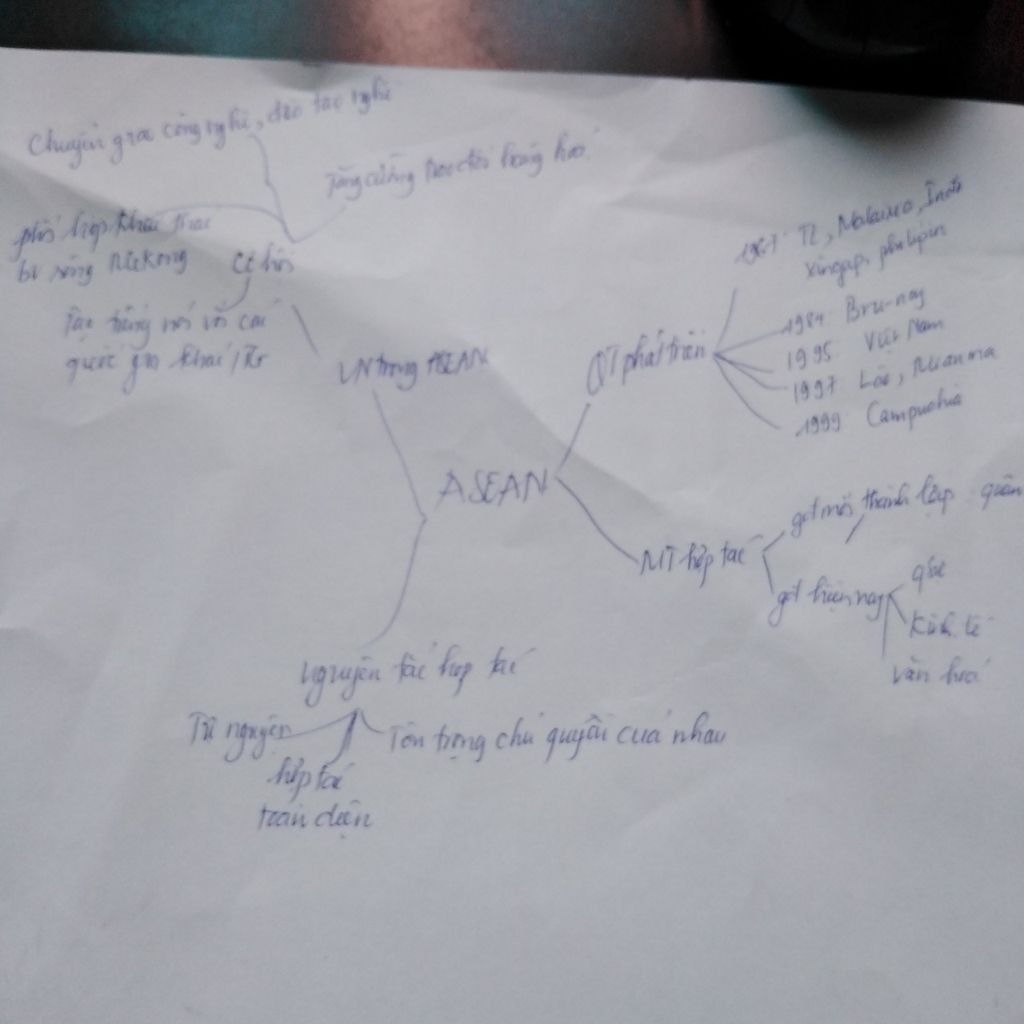 Chuyển giao công nghệ, đào tạo nghề
Tăng cường trao đổi hàng hoá
phối hợp khai thác
lv sông Mê Kông
Cơ hội
Tạo tiếng nói với các
quốc gia khác/TG
VN trong ASEAN
QT phát triển
1967: TL, Malaixia, Inđô
xingapo, philipin
1984 Bru-nay
1995 Việt Nam
1997 Lào, Mianma
1999 Campuchia
ASEAN
MT hợp tác
gđ mới thành lập quân
gđ hiện nay
Kinh tế
văn hoá
nguyên tắc hợp tác
Tự nguyện
Tôn trọng chủ quyền của nhau
hợp tác
toàn diện